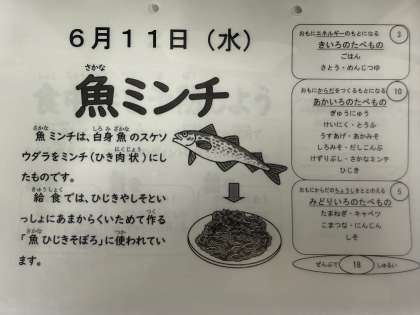 6月11日（水）
さかな
魚ミンチ
さかな しろ み ざかな
魚ミンチは、白身魚のスケソ
にくじょう
ウダラをミンチ（ひき肉状）にし
たものです。
きゅうしょく
給食では、ひじきやしそとい
つく
っしょにあまからくいためて作る
さかな つか
「魚ひじきそぼろ」に使われてい
ます。
3
おもにエネルギーのもとになる
きいろのたべもの
ごはん
さとう・めんじつゆ
10
おもにからだをつくるもとになる
あかいろのたべもの
ぎゅうにゅう
けいにく・とうふ
うすあげ・あかみそ
しろみそ・だしこんぶ
けずりぶし・さかなミンチ
ひじき
5
おもにからだのちょうしをととのえる
みどりいろのたべもの
たまねぎ・キャベツ
こまつな・にんじん
しそ
ぜんぶで 18 しゅるい